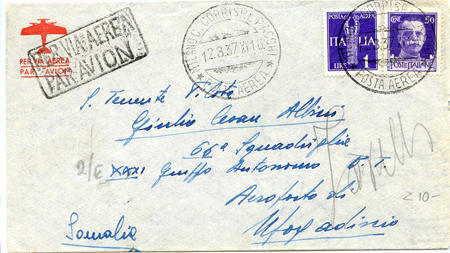 PER VIA AEREA
PAR AVION
PER VIA AEREA
PAR AVION
CORRISP. E PACCHI
12.8.37.XV
POSTA AEREA
ITALIA
LIRE 1
CENT. 50
POSTE ITALIANE
POSTA AEREA
S. Tenente Pilota
Giulio Cesare Albini
66ª Squadriglia
2/E XXXI Gruppo Autonomo
Aeroporto di
Mogadiscio
Somalia
210-